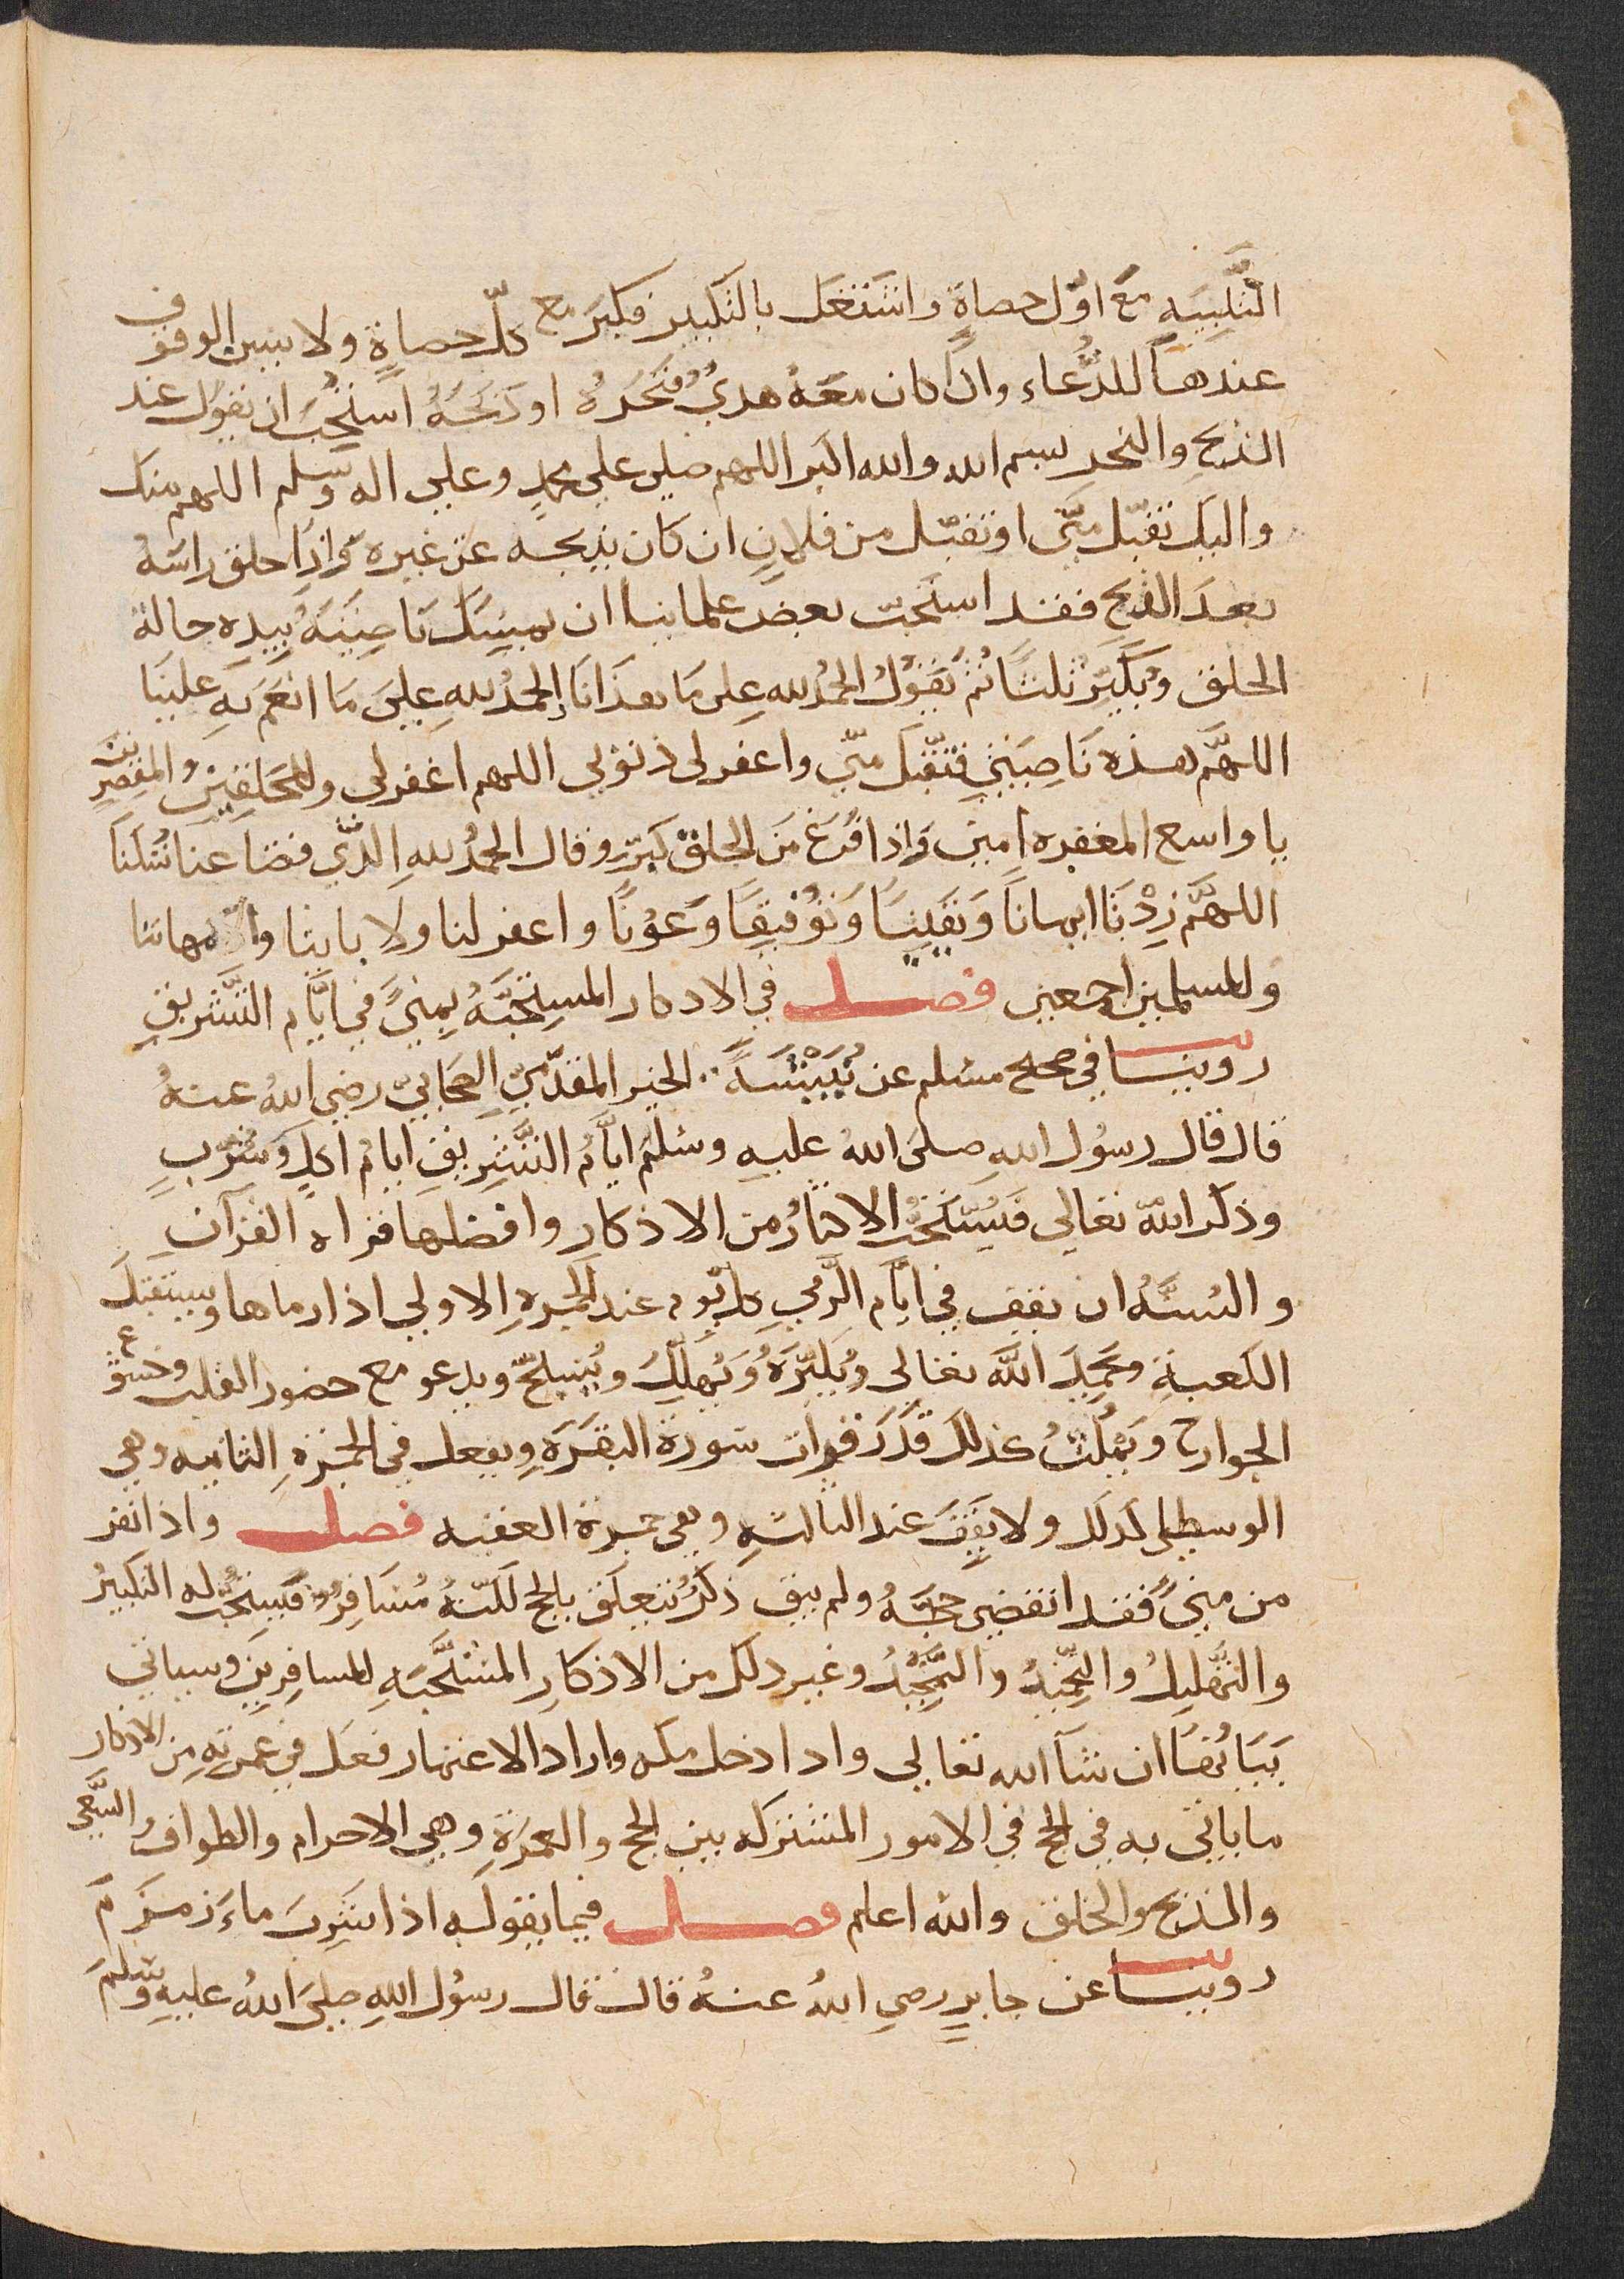 التَّلبِيَةِ مَعَ اوّل حصاةٍ واشتَغَل بالتكبير فكبرَ مع كلّ حصاةٍ ولا يسن الوقوف
عندهَا للدُّعاء واذا كان معَهُ هديٌ فنَحَرَهُ او ذبَحَهُ استُحِبَّ ان يقول عند
الذبح والنحر بسم الله والله اكبر اللهم صلي على محمدٍ وعلى اله وسلم اللهم منك
واليك تقبّل منّي او تقبّل من فلان ان كان يذبحه عن غيره وَاذا حلق راسَهُ
بعدَ الذبح فقد استَحبّ بعض علمائنا ان يمسِكَ نَاصِيَتَهُ بيدِه حالة
الحلق ويُكبّر ثلثًا ثم يَقُولُ الحمدُ لله على مَا هدانا الحمدُ للهِ على مَا انعَمَ بهِ علينا
اللهمَّ هذه نَاصِيَتي فتقبّل منّي واغفر لي ذنوبي اللهم اغفر لي وللمحَلقِين والمقصِّرين
يا واسع المغفره امين وَاذا فرغَ مَن الحلق كبّر وقال الحمدُ للهِ الذّي قضا عنا نُسُكنَا
اللهمَّ زِدْنَا ايمانًا وَيَقينًا وَتوْفيقًا وَعَوْنًا واغفر لنا ولابائنا وامهاتنا
وللمسلمين اجمعين فصل في الاذكار المستحبَّه بمِنىً في ايَّام التَّشريقِ
روينا في صحيح مسلم عن نُبَيْشَةَ الخير المقدّمِيّ الصحابيّ رضي اللهُ عنهُ
قال قال رسُول اللهِ صلى اللهُ عليه وسلم ايَّامُ التَّشرِيقِ ايامُ اكلٍ وَشربٍ
وذكر الله تعالى فَيُستَحَبُّ الاكثارُ من الاذكارِ وافضلها قراه القرآن
والسُنَّهُ ان يقف في ايّام الرَّمي كلّ يوم عند الجمرهِ الاولي اذا رماها ويستقبلَ
الكعبةِ ويحمِدَ اللهَ تعالى ويُكبّرَهُ وَيُهلّلُ ويُسبّحُ ويدعو مع حضور القلب وخشوع
الجوارح ويَمْكُثُ كذلك قَدَرَ قرات سورة البقرَهِ ويفعل في الجمرة الثانيه وهي
الوسطى كذلك ولا يَقِفَ عند الثالثهِ وهي جمرة العقبه فصل واذا نفر
من مِنىً فقد انقضى حَجَّهُ ولم يبق ذكرٌ يتعلق بالحج لكنّهُ مُسَافِرٌ فيستحبُّ له التكبيرُ
والتّهليلُ والتحميدُ والتمجيدُ وغير ذلك من الاذكارِ المستحَبَّهِ للمسافِرين وسياتي
بيَانُهُا ان شآ الله تعالى واذا دخل مكه واراد الاعتمار فعل في عمرتهِ من الاذكار
ما ياتي به في الحج في الامور المشتركه بين الحج والعمرَةِ وهي الاحرام والطوافُ والسَّعي
والذبح والحلق والله اعلم فصل فيما يقولهُ اذا شربَ ماءَ زمزم
روينا عن جابرٍ رضي اللهُ عنهُ قال قال رسُول اللهِ صلى اللهُ عليهِ وسلم